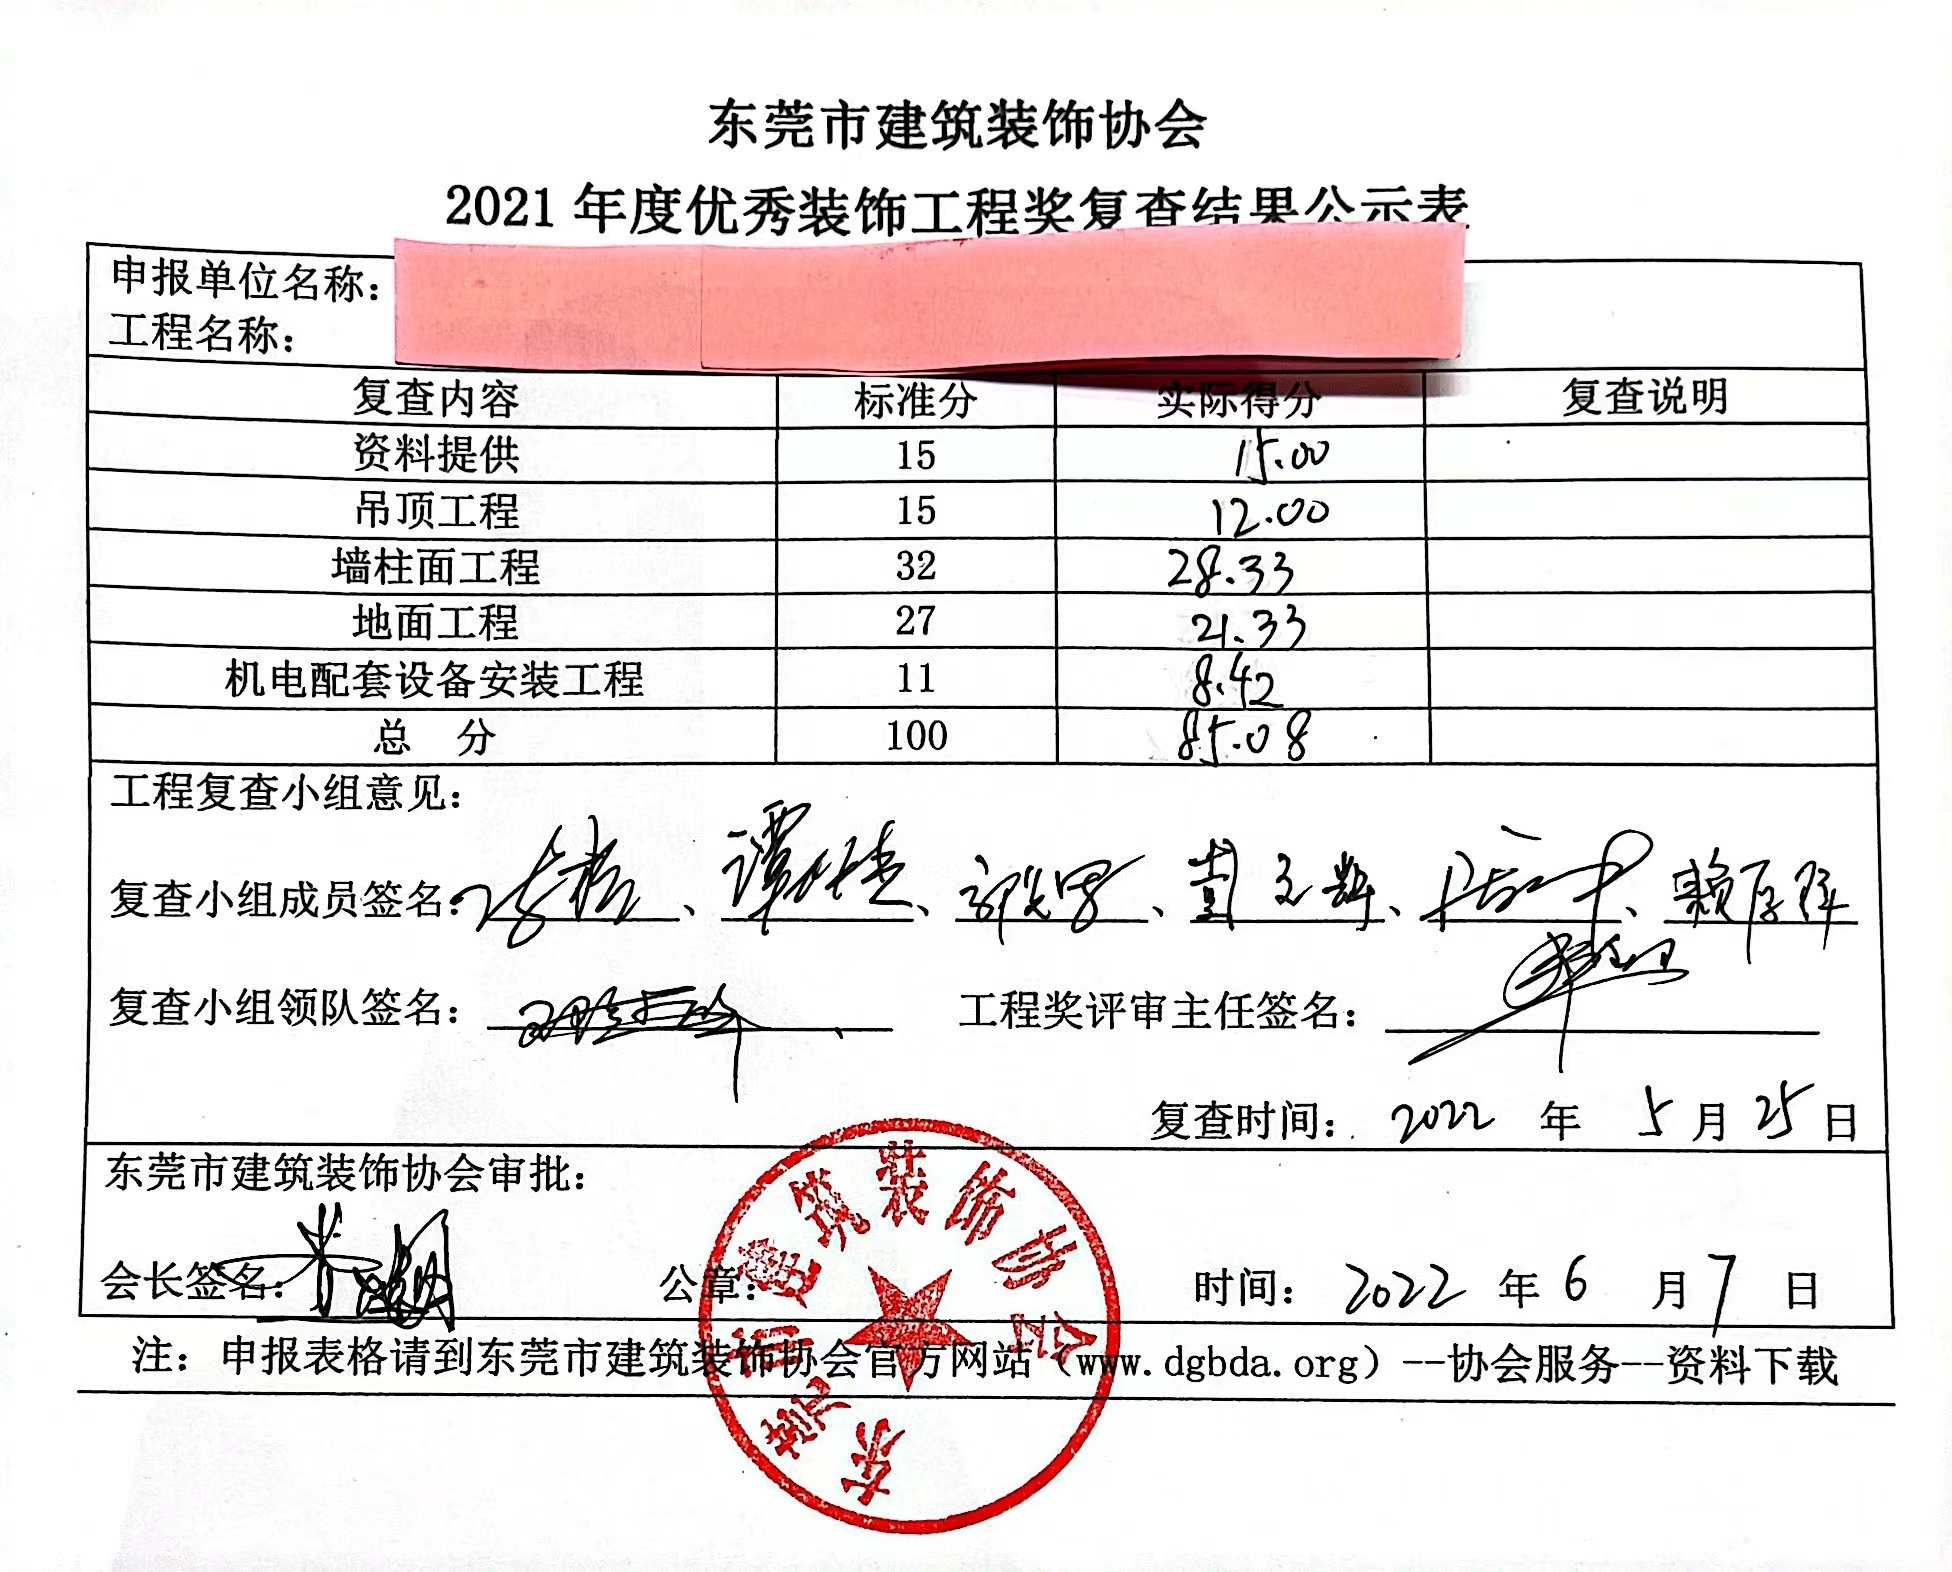 东莞市建筑装饰协会
2021 年度优秀装饰工程奖复查结果公示表
申报单位名称：
工程名称：
复查内容 标准分 实际得分 复查说明
资料提供 15 15.00
吊顶工程 15 12.00
墙柱面工程 32 28.33
地面工程 27 21.33
机电配套设备安装工程 11 8.42
总 分 100 85.08
工程复查小组意见：
复查小组成员签名： 、 谭 、 、 彭文辉 、 、 赖
复查小组领队签名： 工程奖评审主任签名：
复查时间： 2022 年 5 月 25 日
东莞市建筑装饰协会审批：
会长签名： 公章： 时间： 2022 年 6 月 7 日
东莞市建筑装饰协会
注：申报表格请到东莞市建筑装饰协会官方网站（www.dgbda.org）--协会服务--资料下载